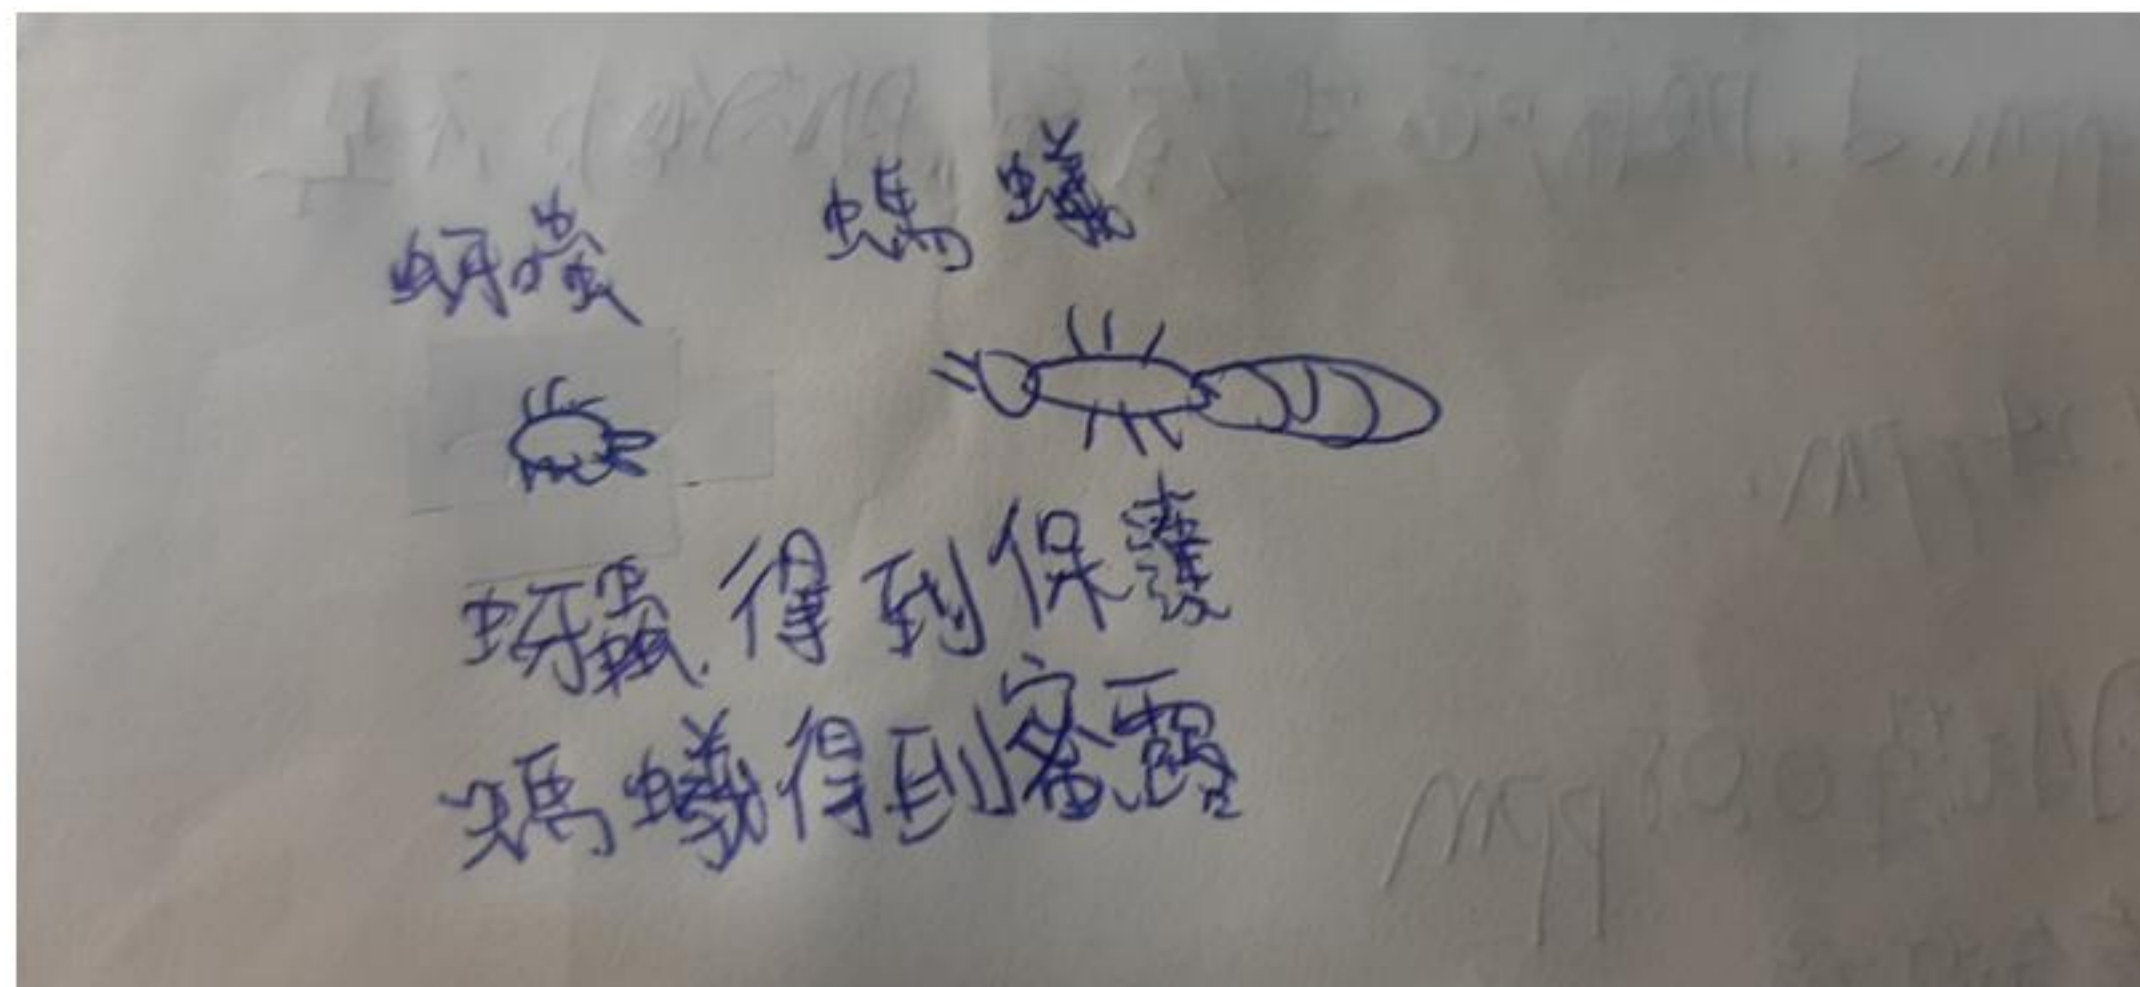 蚜蟲 螞蟻
蚜蟲得到保護
螞蟻得到蜜露